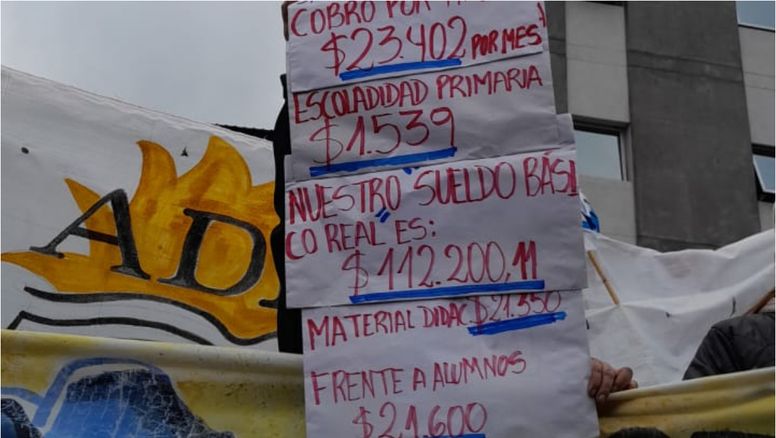 COBRO POR
$23.402 POR MES
ESCOLADIDAD PRIMARIA
$1.539
NUESTRO SUELDO BÁSI
CO REAL ES:
$112.200,11
MATERIAL DIDAC $21.350
FRENTE A ALUMNOS
$21.600
AD